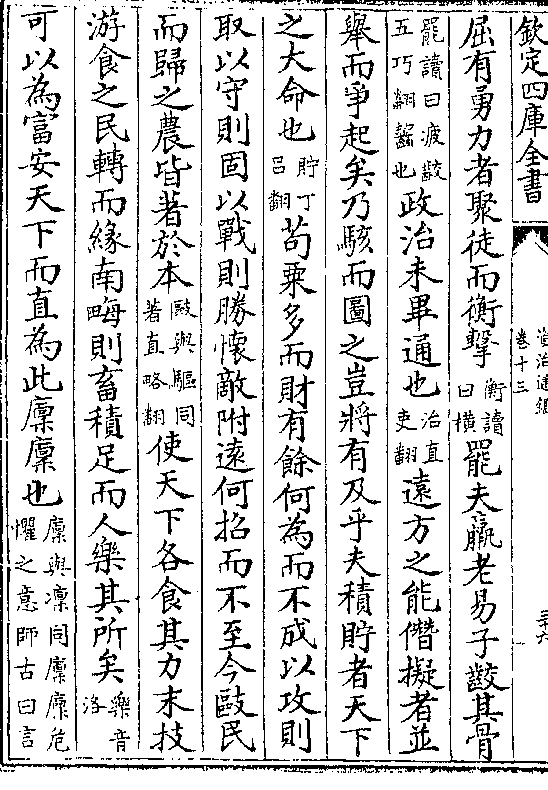 欽定四庫全書
資治通鑑
卷十三
三十六
屈有勇力者聚徒而衡擊衡讀曰橫罷夫羸老易子齩其骨
罷讀曰疲齩五巧翻齧也政治未畢通也治直吏翻遠方之能僭擬者並
舉而爭起矣乃駭而圖之豈將有及乎夫積貯者天下
之大命也貯丁吕翻茍粟多而財有餘何為而不成以攻則
取以守則固以戰則勝懷敵附遠何招而不至今敺民
而歸之農皆著於本敺與驅同著直略翻使天下各食其力末技
游食之民轉而緣南畮則畜積足而人樂其所矣樂音洛
可以為富安天下而直為此廩廩也廩與凛同廩廩危懼之意師古曰言